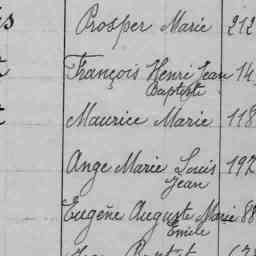 is Prosper Marie 212
François Henri Jean 14
Baptiste
Maurice Marie 118
Ange Marie Louis 192
Jean
Eugène Auguste Marie 88
Emile